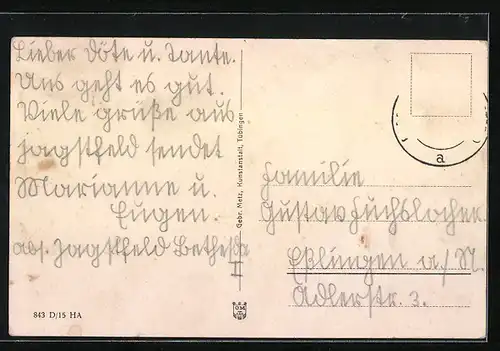 Lieber Döte u. Tante.
Uns geht es gut.
Viele grüße aus
Jagstfeld sendet
Marianne u.
Eugen.
abs. Jagstfeld Bethesda
II
Gebr. Metz, Kunstanstalt, Tübingen
a
Familie
Gustav Fuchslocher
Eßlingen a./N.
Adlerstr. 3.
843 D/15 HA